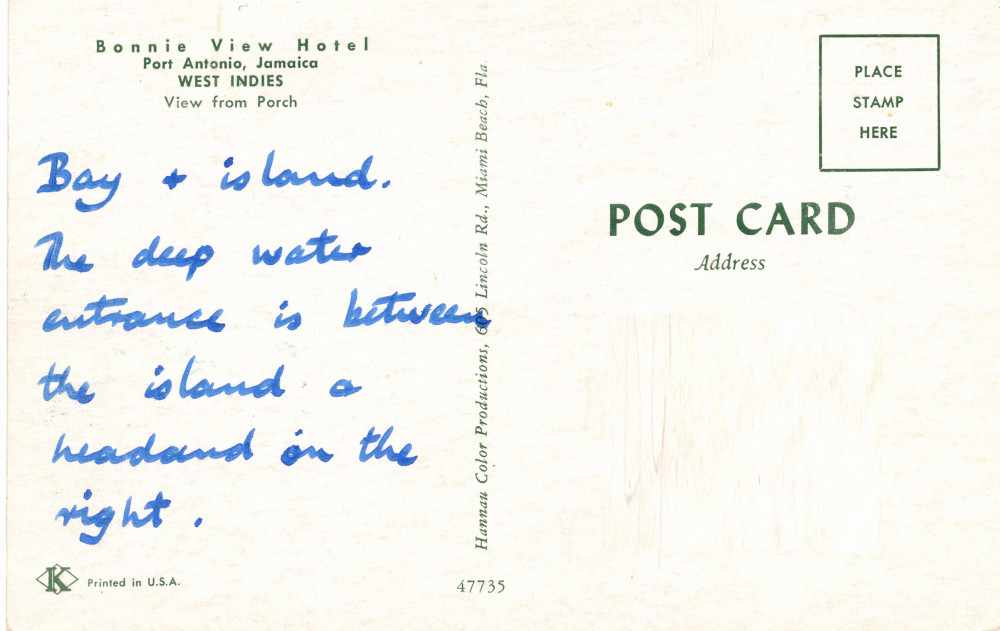 Bonnie View Hotel
Port Antonio, Jamaica
WEST INDIES
View from Porch
Bay + island.
The deep water
entrance is between
the island a
headand on the
right.
K
Printed in U.S.A.
Hannau Color Productions, 605 Lincoln Rd., Miami Beach, Fla.
47735
PLACE
STAMP
HERE
POST CARD
Address